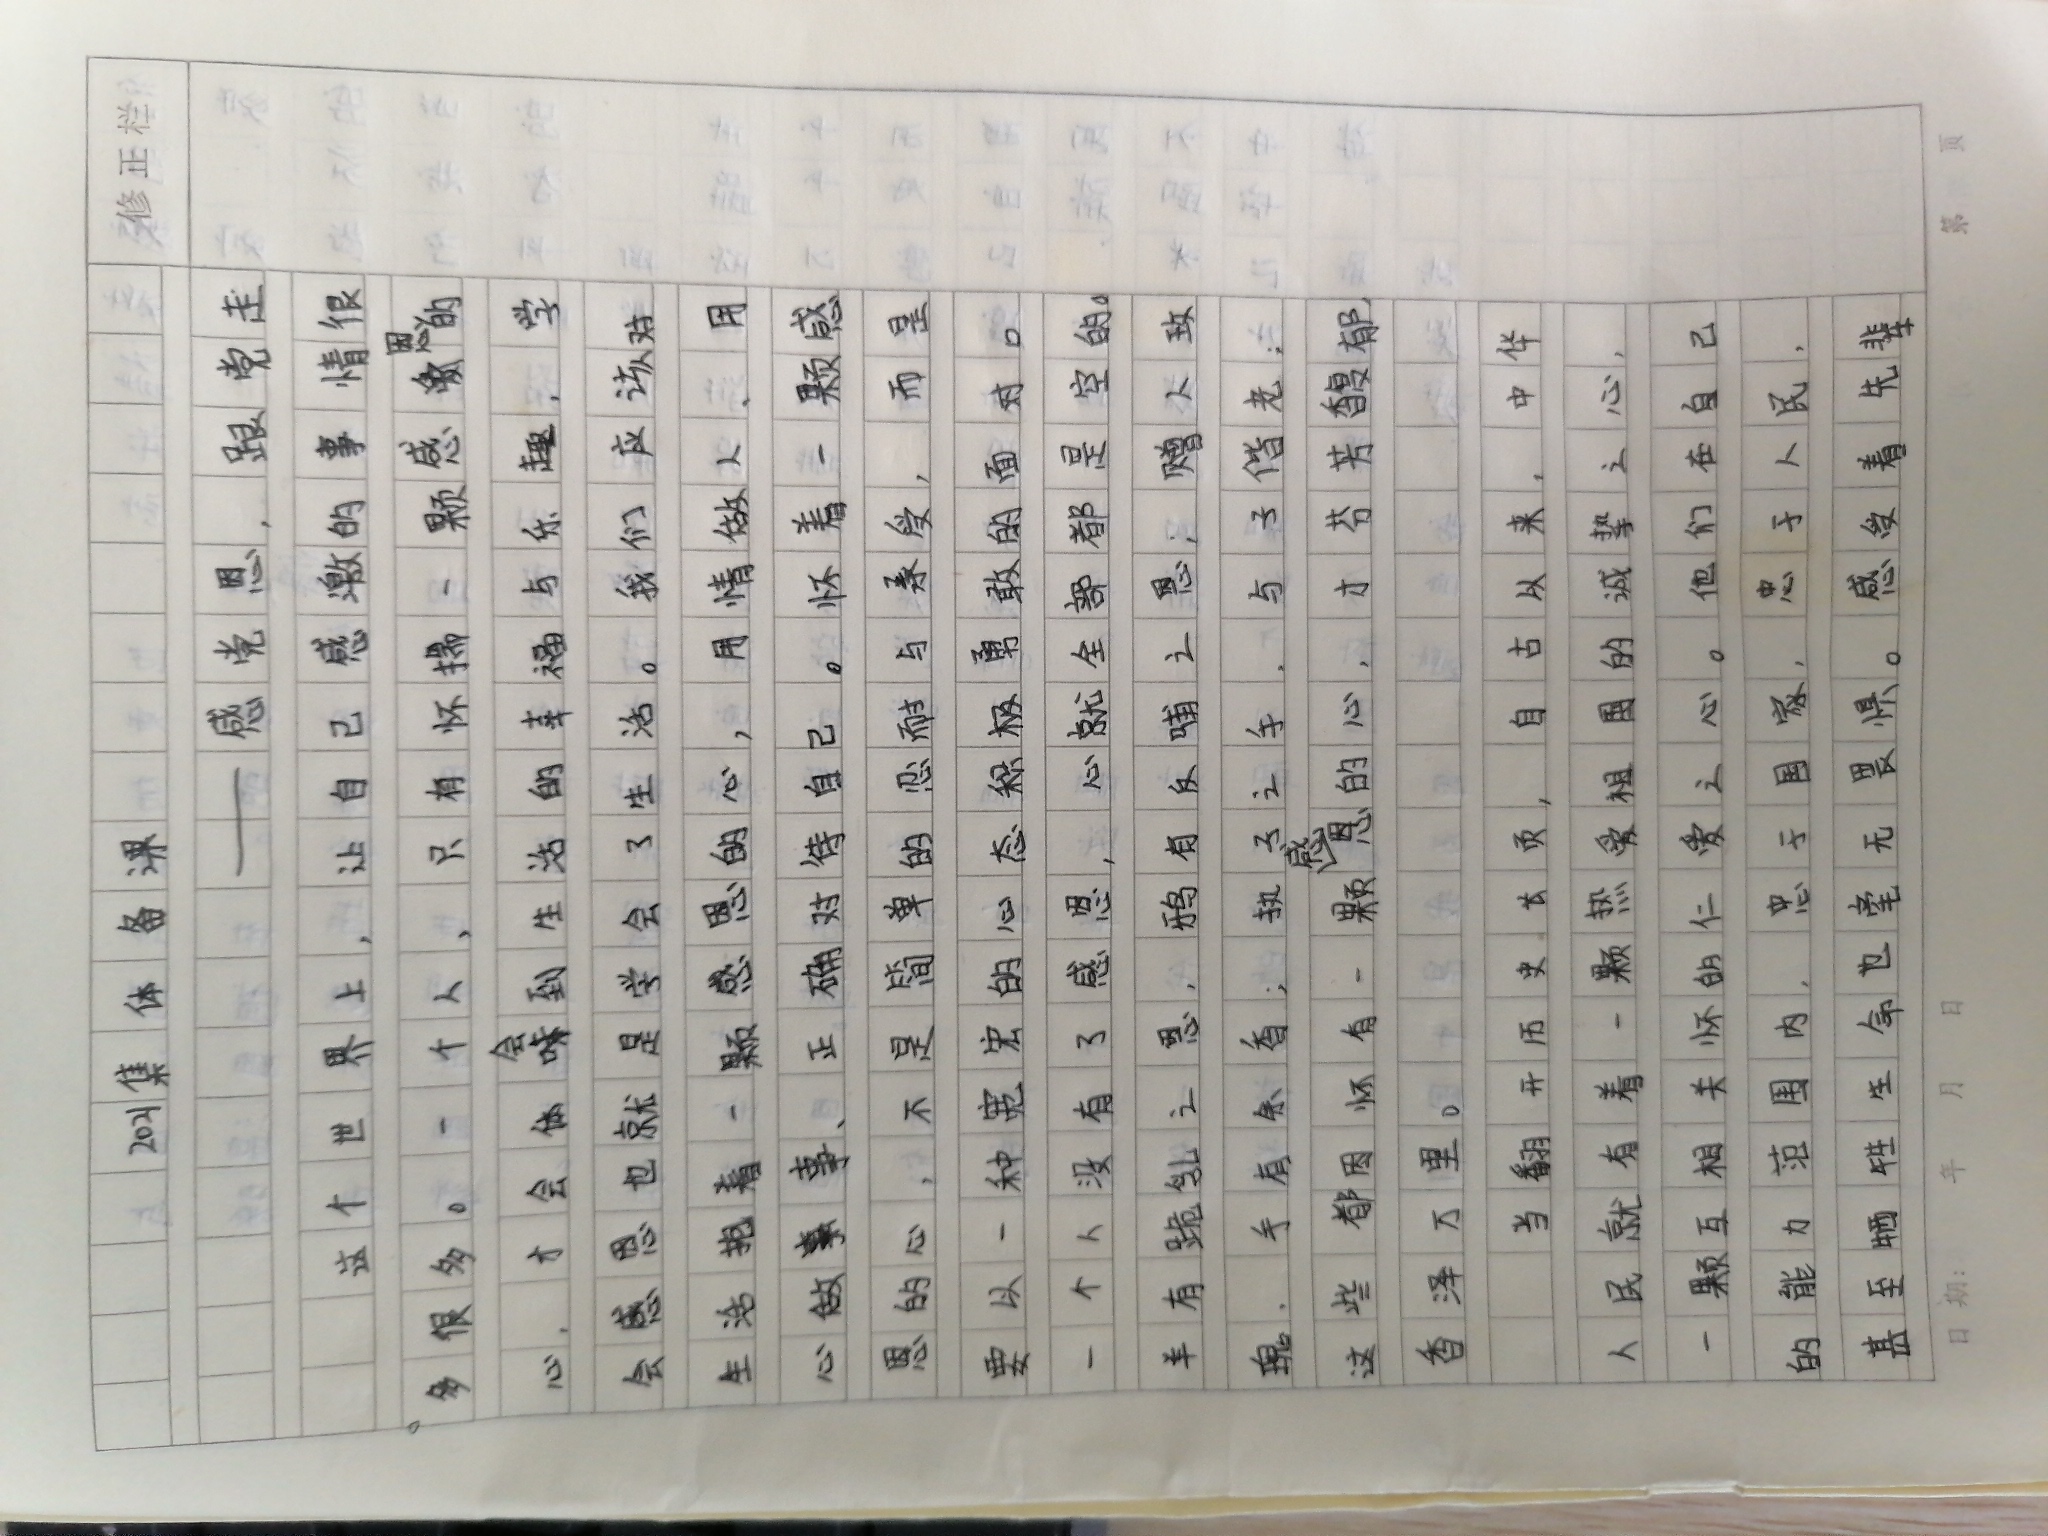 2021集体备课
修正栏
——感党恩，跟党走
这个世界上，让自己感感邀的事情很
多很多。一个人，只有怀揣一颗感恩的
心，才会体会到生活的幸福与乐趣，学
会感恩也就是学会了生活。我们应该对
生活抱着一颗感恩的心，用情做人、用
心做事、正确对待自己。怀着一颗感
恩的心，不是简单的忍耐与承受，而是
要以一种宽宏的心态积极勇敢的面对。
一个人没有了感恩，心就全部都是空的。
羊有跪乳之恩，鸦有反哺之恩；赠人玫
瑰，手有余香；执子之手，与子偕老；
这些都因怀有一颗感恩的心，才芬芳馥郁，
香泽万里。
当翻开历史长页，自古以来，中华
人民就有着一颗热爱祖国的诚挚之心，
一颗互相关怀的仁爱之心。他们在自己
的能力范围内，忠于国家，忠于人民，
甚至牺牲生命也毫无畏惧。感受着先辈
日期： 年 月 日
第 页